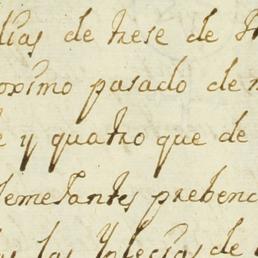 días de trese de
oximo pasado de
y quatro que de
semejantes preben
las Yglesias de